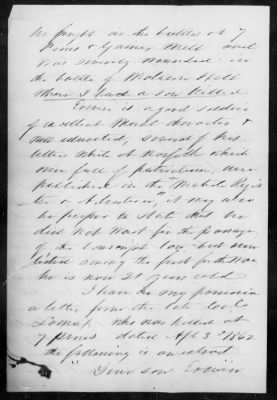 He fought in the battles at 7
Pines & Gaines Mill and
was severely wounded in
the battle of Malvern Hill
Where I had a son Killed
Erwin is a good soldier
of excellent Moral character &
well educated, several of his
letters which at Norfolk which
were full of patriotism, were
published in the Mobile Regis
ter & Advertiser, it may also
be proper to state that he
did not wait for the passage
of the Conscript law but was
listed among the first for the War,
he is now 21 years old
I have in my possession
a letter from the late Col
Lomax who was killed at
7 pines dated Apl 3rd 1862
the following is an extract
"Your son Erwin